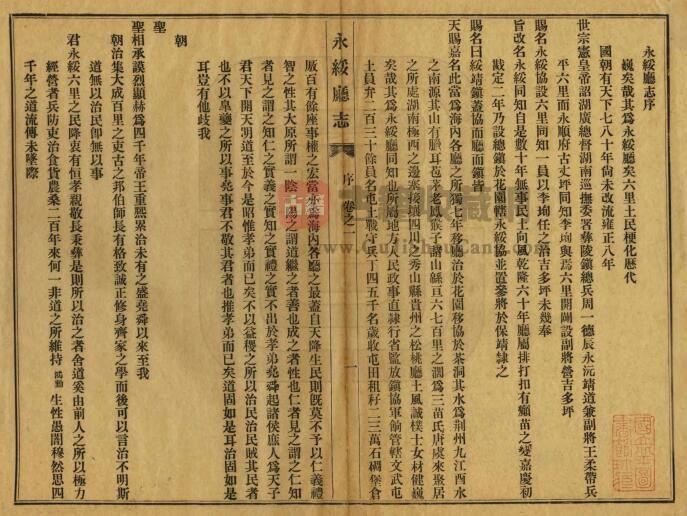 永綏廳志序
巍矣哉其為永綏廳矣六里土民梗化歷代
國朝有天下七八十年尚未改流雍正八年
世宗憲皇帝詔湖廣總督湖南巡撫委署彝陵鎮總兵周一德辰永沅靖道兼副將王柔帶兵
平六里而永順府古丈坪同知李珣與焉六里開闢設副將營吉多坪
賜名永綏協設六里同知一員以李珣任之治吉多坪未幾奉
旨改名永綏同知自是數十年無事民土向風乾隆六十年廳屬排打扣有癲苗之變嘉慶初
戡定二年乃設總鎮於花園轄永綏協並置叅將於保靖隸之
賜名曰綏靖鎮蓋協而廳而鎮皆
天賜嘉名此當為海內各廳之所獨七年移廳治於花園移協於茶洞其水為荊州九江酉水
之南源其山有臘耳苞茅老鳳猴子諸山緜亘六七百里之濶為三苗氏唐虞來聚居
之所處湖南極西之邊塞接壤四川之秀山縣貴州之松桃廳土風誠樸士女材健巍
矣哉其為永綏廳同知也所屬地方人民政事直隸行省監放鎮協軍餉管轄文武屯
土員弁二百三十餘員名屯土戰守兵丁四五千名歲收屯田租籽二三萬石碉堡倉
永綏廳志
序
卷之一
一
厫百有餘座事權之宏當亦為海內各廳之最蓋自天降生民則旣莫不予以仁義禮
智之性其大原所謂一陰一陽之謂道繼之者善也成之者性也仁者見之謂之仁知
者見之謂之知仁之實義之實知之實禮之實不出於孝弟堯舜起諸侯庶人為天子
君天下開天明道至於今是昭惟孝弟而已矣不以益稷之所以治民治民賊其民者
也不以皐夔之所以事堯事君不敬其君者也推孝弟而已矣道固如是耳治固如是
耳豈有他歧我
朝
聖
聖相承謨烈顯赫為四千年帝王重熙累洽未有之盛堯舜以來至我
朝治集大成百里之吏古之邦伯師長有格致誠正修身齊家之學而後可以言治不明斯
道無以治民卽無以事
君永綏六里之民降衷有恒孝親敬長秉彝是則所以治之者舍道奚由前人之所以極力
經營者兵防吏治食貨農桑二百年來何一非道之所維持 鴻勳 生性愚闇穆然思四
千年之道流傳未墜際